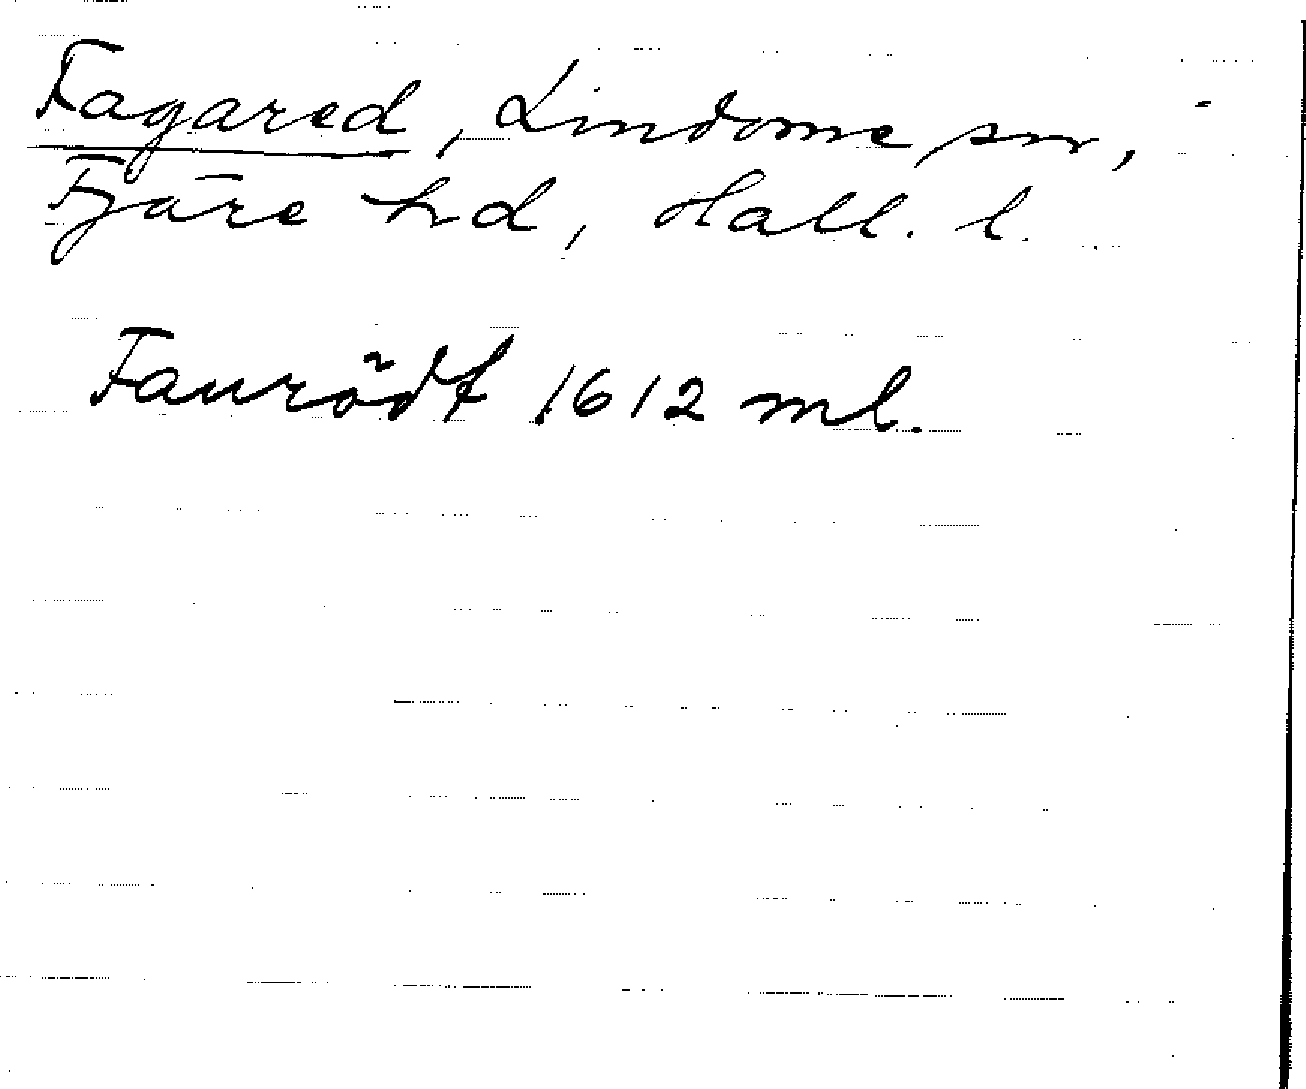 Fagared, Lindome sn,
Fjäre hd, Hall. l.
Faurödt 1612 ml.